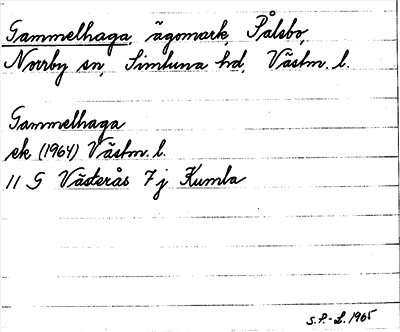 Gammelhaga, ägomark, Pålsbo,
Norrby sn, Simtuna hd, Västm. l.
Gammelhaga
ek (1964) Västm. l.
11 G Västerås 7 j Kumla
S.P.-L. 1965